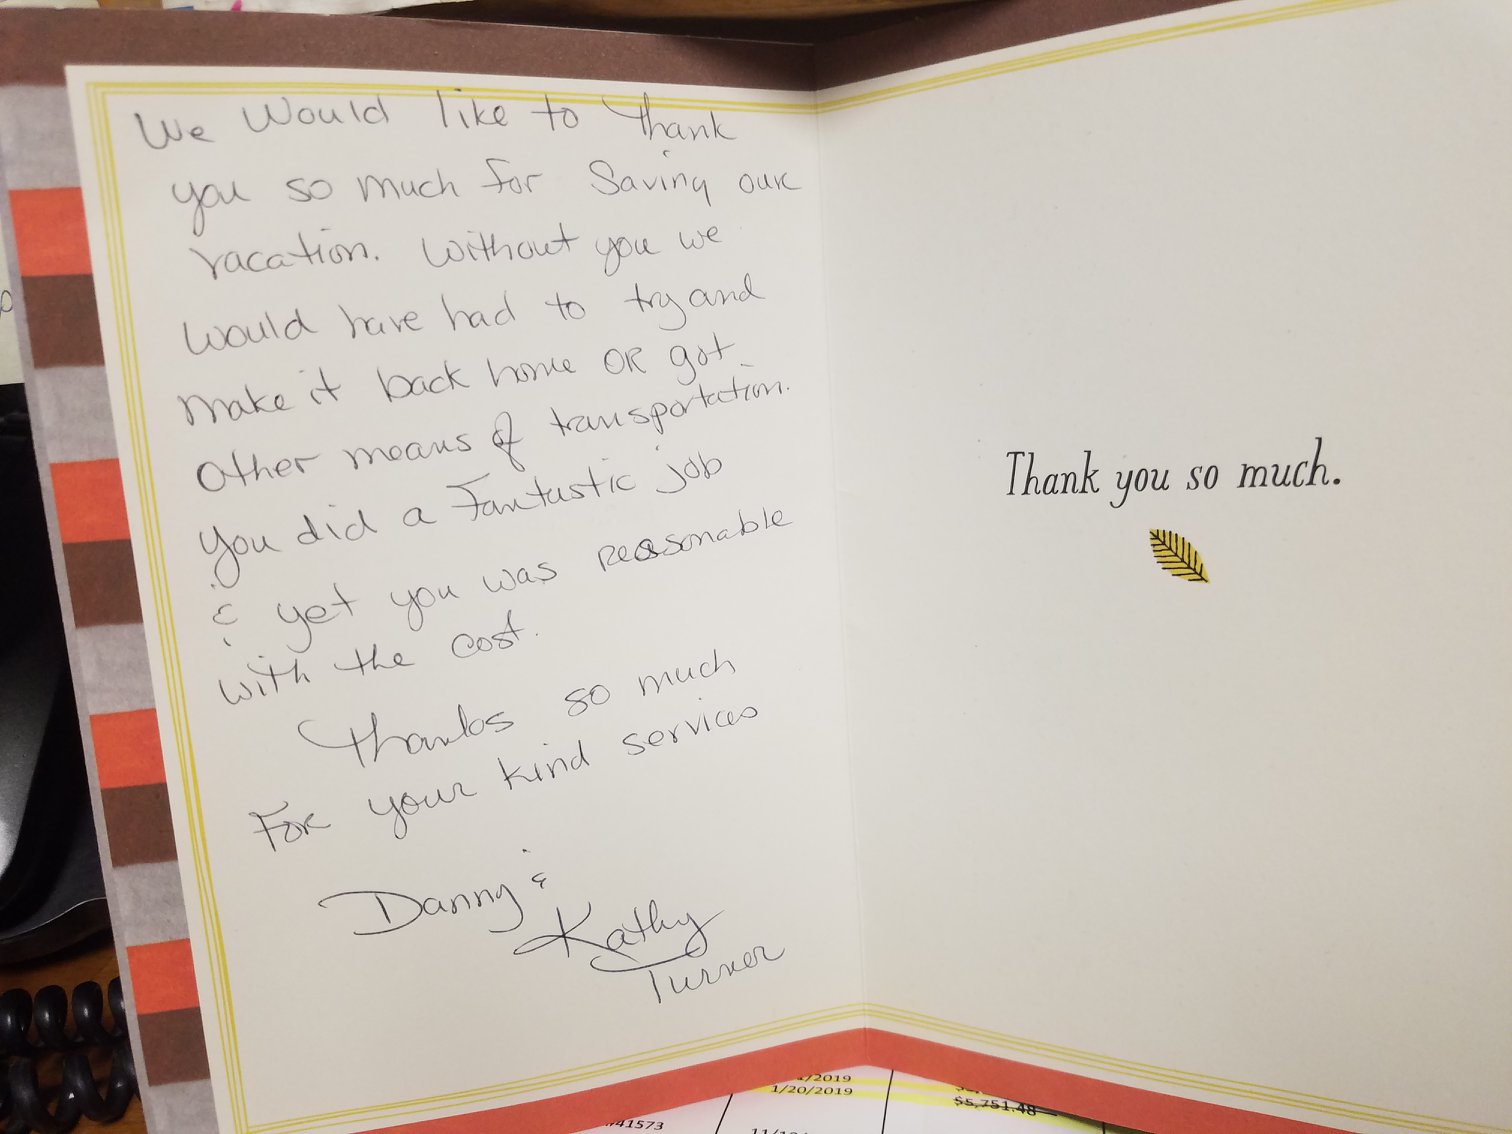 We Would like to thank
you so much for Saving our
vacation. Without you we
would have had to try and
make it back home OR got
other means of transportation.
You did a Fantastic job
& yet you was reasonable
with the cost.
Thanks so much
For your kind services
Danny &
Kathy
Turner
Thank you so much.
/2019
1/20/2019
$5,751.48
41573